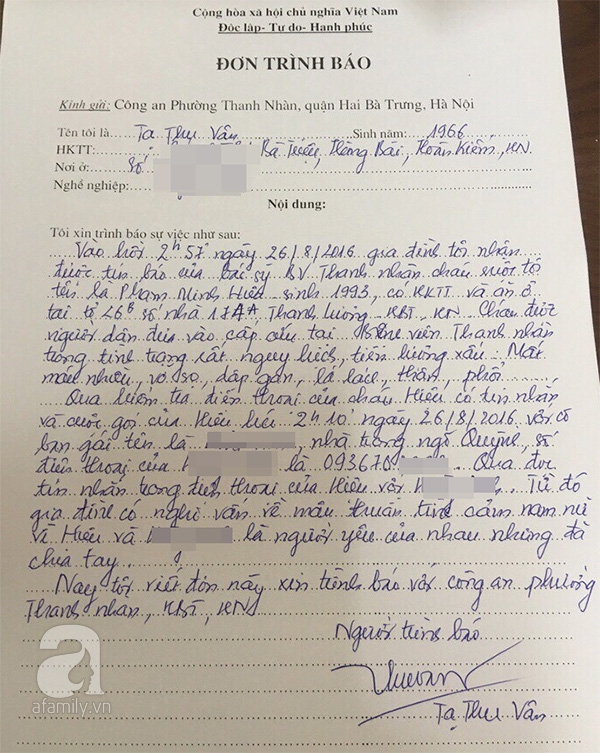 Cộng hòa xã hội chủ nghĩa Việt Nam
Độc lập- Tự do- Hạnh phúc
ĐƠN TRÌNH BÁO
Kính gửi: Công an Phường Thanh Nhàn, quận Hai Bà Trưng, Hà Nội
Tên tôi là Tạ Thu Vân Sinh năm: 1966
HKTT: Bà Triệu, Hàng Bài, Hoàn Kiếm, HN
Nơi ở: Số
Nghề nghiệp:
Nội dung:
Tôi xin trình báo sự việc như sau:
Vào hồi 2h57' ngày 26/8/2016 gia đình tôi nhận
được tin báo của bác sỹ BV Thanh Nhàn cháu ruột tôi
tên là Phạm Minh Hiếu sinh 1993, có HKTT và ăn ở
tại tổ 26B số nhà 17A4, Thanh Lương HBT, HN. Cháu được
người dân đưa vào cấp cứu tại Bệnh viện Thanh Nhàn
trong tình trạng rất nguy kịch, tiên lượng xấu. Mất
máu nhiều, vỡ sọ, dập gan, lá lách, thận, phổi
Qua kiểm tra điện thoại của cháu Hiếu có tin nhắn
và cuộc gọi của Hiếu lúc 2h10' ngày 26/8/2016 với cô
bạn gái tên là nhà trong ngõ Quỳnh, số
điện thoại của H là 093670. Qua đọc
tin nhắn trong điện thoại của Hiếu với H. Từ đó
gia đình có nghi vấn về mâu thuẫn tình cảm nam nữ
vì Hiếu và là người yêu của nhau nhưng đã
chia tay.
Nay tôi viết đơn này xin trình báo với công an phường
Thanh nhàn, HBT, HN
Người trình báo
Tạ Thu Vân
a
afamily.vn